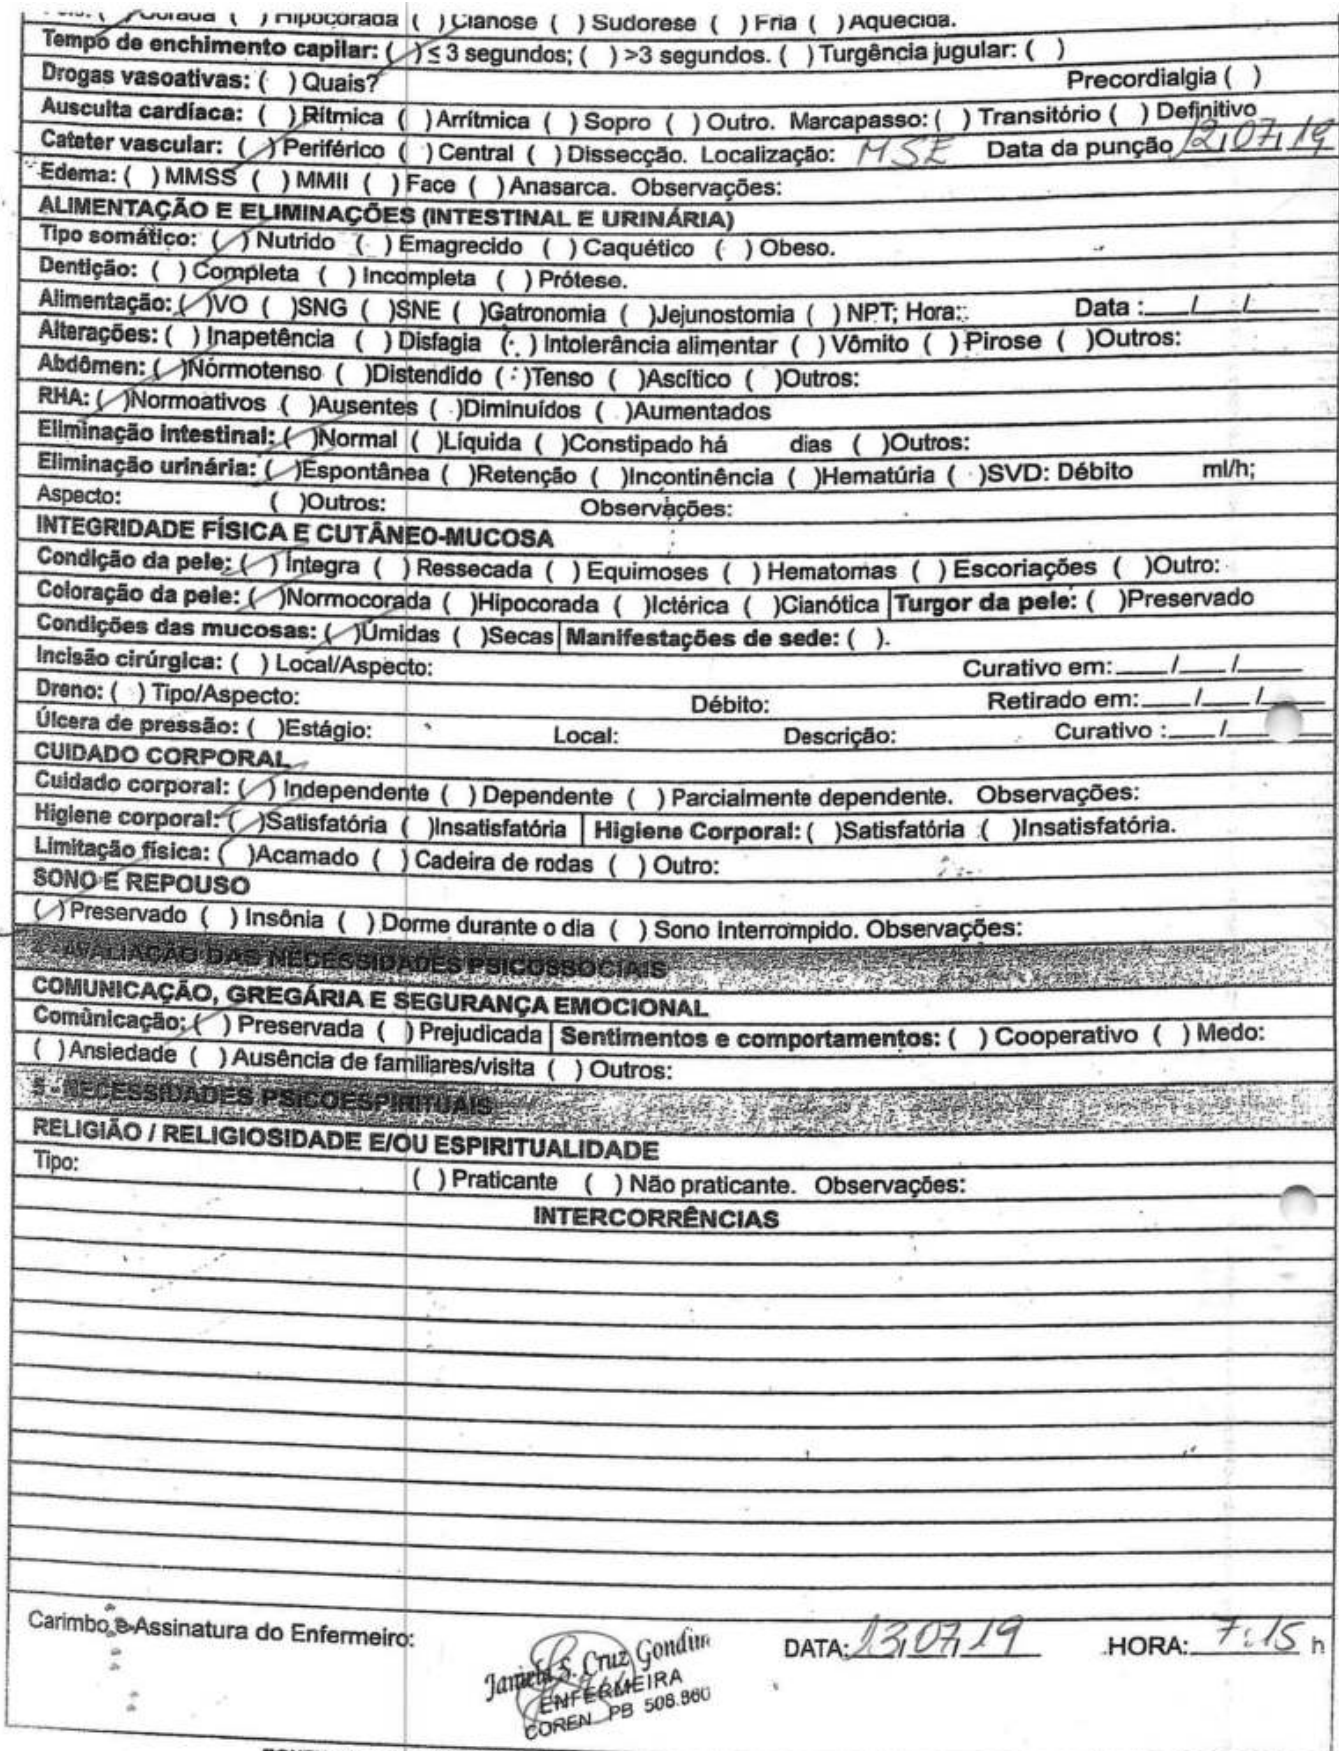 Corada ( ) Hipocorada ( ) Cianose ( ) Sudorese ( ) Fria ( ) Aquecida.
Tempo de enchimento capilar: (/) ≤ 3 segundos; ( ) >3 segundos. ( ) Turgência jugular: ( )
Drogas vasoativas: ( ) Quais? Precordialgia ( )
Ausculta cardíaca: ( ) Rítmica ( ) Arrítmica ( ) Sopro ( ) Outro. Marcapasso: ( ) Transitório ( ) Definitivo
Cateter vascular: (/) Periférico ( ) Central ( ) Dissecção. Localização: MSE Data da punção 12,07,19
Edema: ( ) MMSS ( ) MMII ( ) Face ( ) Anasarca. Observações:
ALIMENTAÇÃO E ELIMINAÇÕES (INTESTINAL E URINÁRIA)
Tipo somático: (/) Nutrido ( ) Emagrecido ( ) Caquético ( ) Obeso.
Dentição: ( ) Completa ( ) Incompleta ( ) Prótese.
Alimentação: (/)VO ( )SNG ( )SNE ( )Gatronomia ( )Jejunostomia ( ) NPT; Hora:: Data :___/___/___
Alterações: ( ) Inapetência ( ) Disfagia ( ) Intolerância alimentar ( ) Vômito ( ) Pirose ( )Outros:
Abdômen: (/)Normotenso ( )Distendido ( )Tenso ( )Ascítico ( )Outros:
RHA: (/)Normoativos ( )Ausentes ( )Diminuídos ( )Aumentados
Eliminação intestinal: (/)Normal ( )Líquida ( )Constipado há dias ( )Outros:
Eliminação urinária: (/)Espontânea ( )Retenção ( )Incontinência ( )Hematúria ( )SVD: Débito ml/h;
Aspecto: ( )Outros: Observações:
INTEGRIDADE FÍSICA E CUTÂNEO-MUCOSA
Condição da pele: (/) Íntegra ( ) Ressecada ( ) Equimoses ( ) Hematomas ( ) Escoriações ( )Outro:
Coloração da pele: (/)Normocorada ( )Hipocorada ( )Ictérica ( )Cianótica Turgor da pele: ( )Preservado
Condições das mucosas: (/)Úmidas ( )Secas Manifestações de sede: ( ).
Incisão cirúrgica: ( ) Local/Aspecto: Curativo em: ___/___/___
Dreno: ( ) Tipo/Aspecto: Débito: Retirado em: ___/___/___
Úlcera de pressão: ( )Estágio: Local: Descrição: Curativo :___/___
CUIDADO CORPORAL
Cuidado corporal: (/) Independente ( ) Dependente ( ) Parcialmente dependente. Observações:
Higiene corporal: (/)Satisfatória ( )Insatisfatória Higiene Corporal: ( )Satisfatória ( )Insatisfatória.
Limitação física: ( )Acamado ( ) Cadeira de rodas ( ) Outro:
SONO E REPOUSO
(/) Preservado ( ) Insônia ( ) Dorme durante o dia ( ) Sono Interrompido. Observações:
AVALIAÇÃO DAS NECESSIDADES PSICOSSOCIAIS
COMUNICAÇÃO, GREGÁRIA E SEGURANÇA EMOCIONAL
Comunicação: (/) Preservada ( ) Prejudicada Sentimentos e comportamentos: ( ) Cooperativo ( ) Medo:
( ) Ansiedade ( ) Ausência de familiares/visita ( ) Outros:
5 - NECESSIDADES PSICOESPIRITUAIS
RELIGIÃO / RELIGIOSIDADE E/OU ESPIRITUALIDADE
Tipo: ( ) Praticante ( ) Não praticante. Observações:
INTERCORRÊNCIAS
Carimbo e Assinatura do Enfermeiro: DATA: 13,07,19 HORA: 7:15 h
S. Cruz Gondim
ENFERMEIRA
COREN PB 508.860